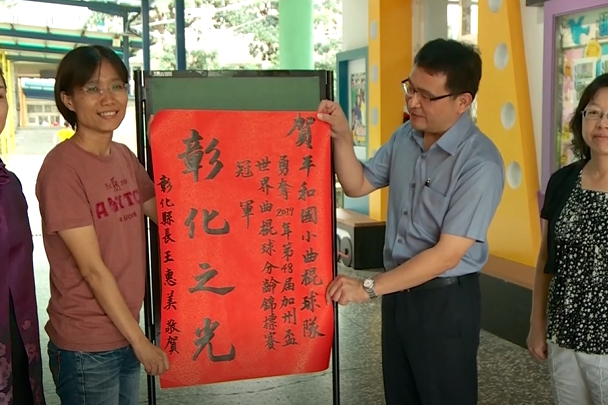 賀平和國小曲棍球隊
勇奪2019年第48屆加州盃
世界曲棍球分齡錦標賽
冠軍
彰化之光
彰化縣長王惠美敬賀